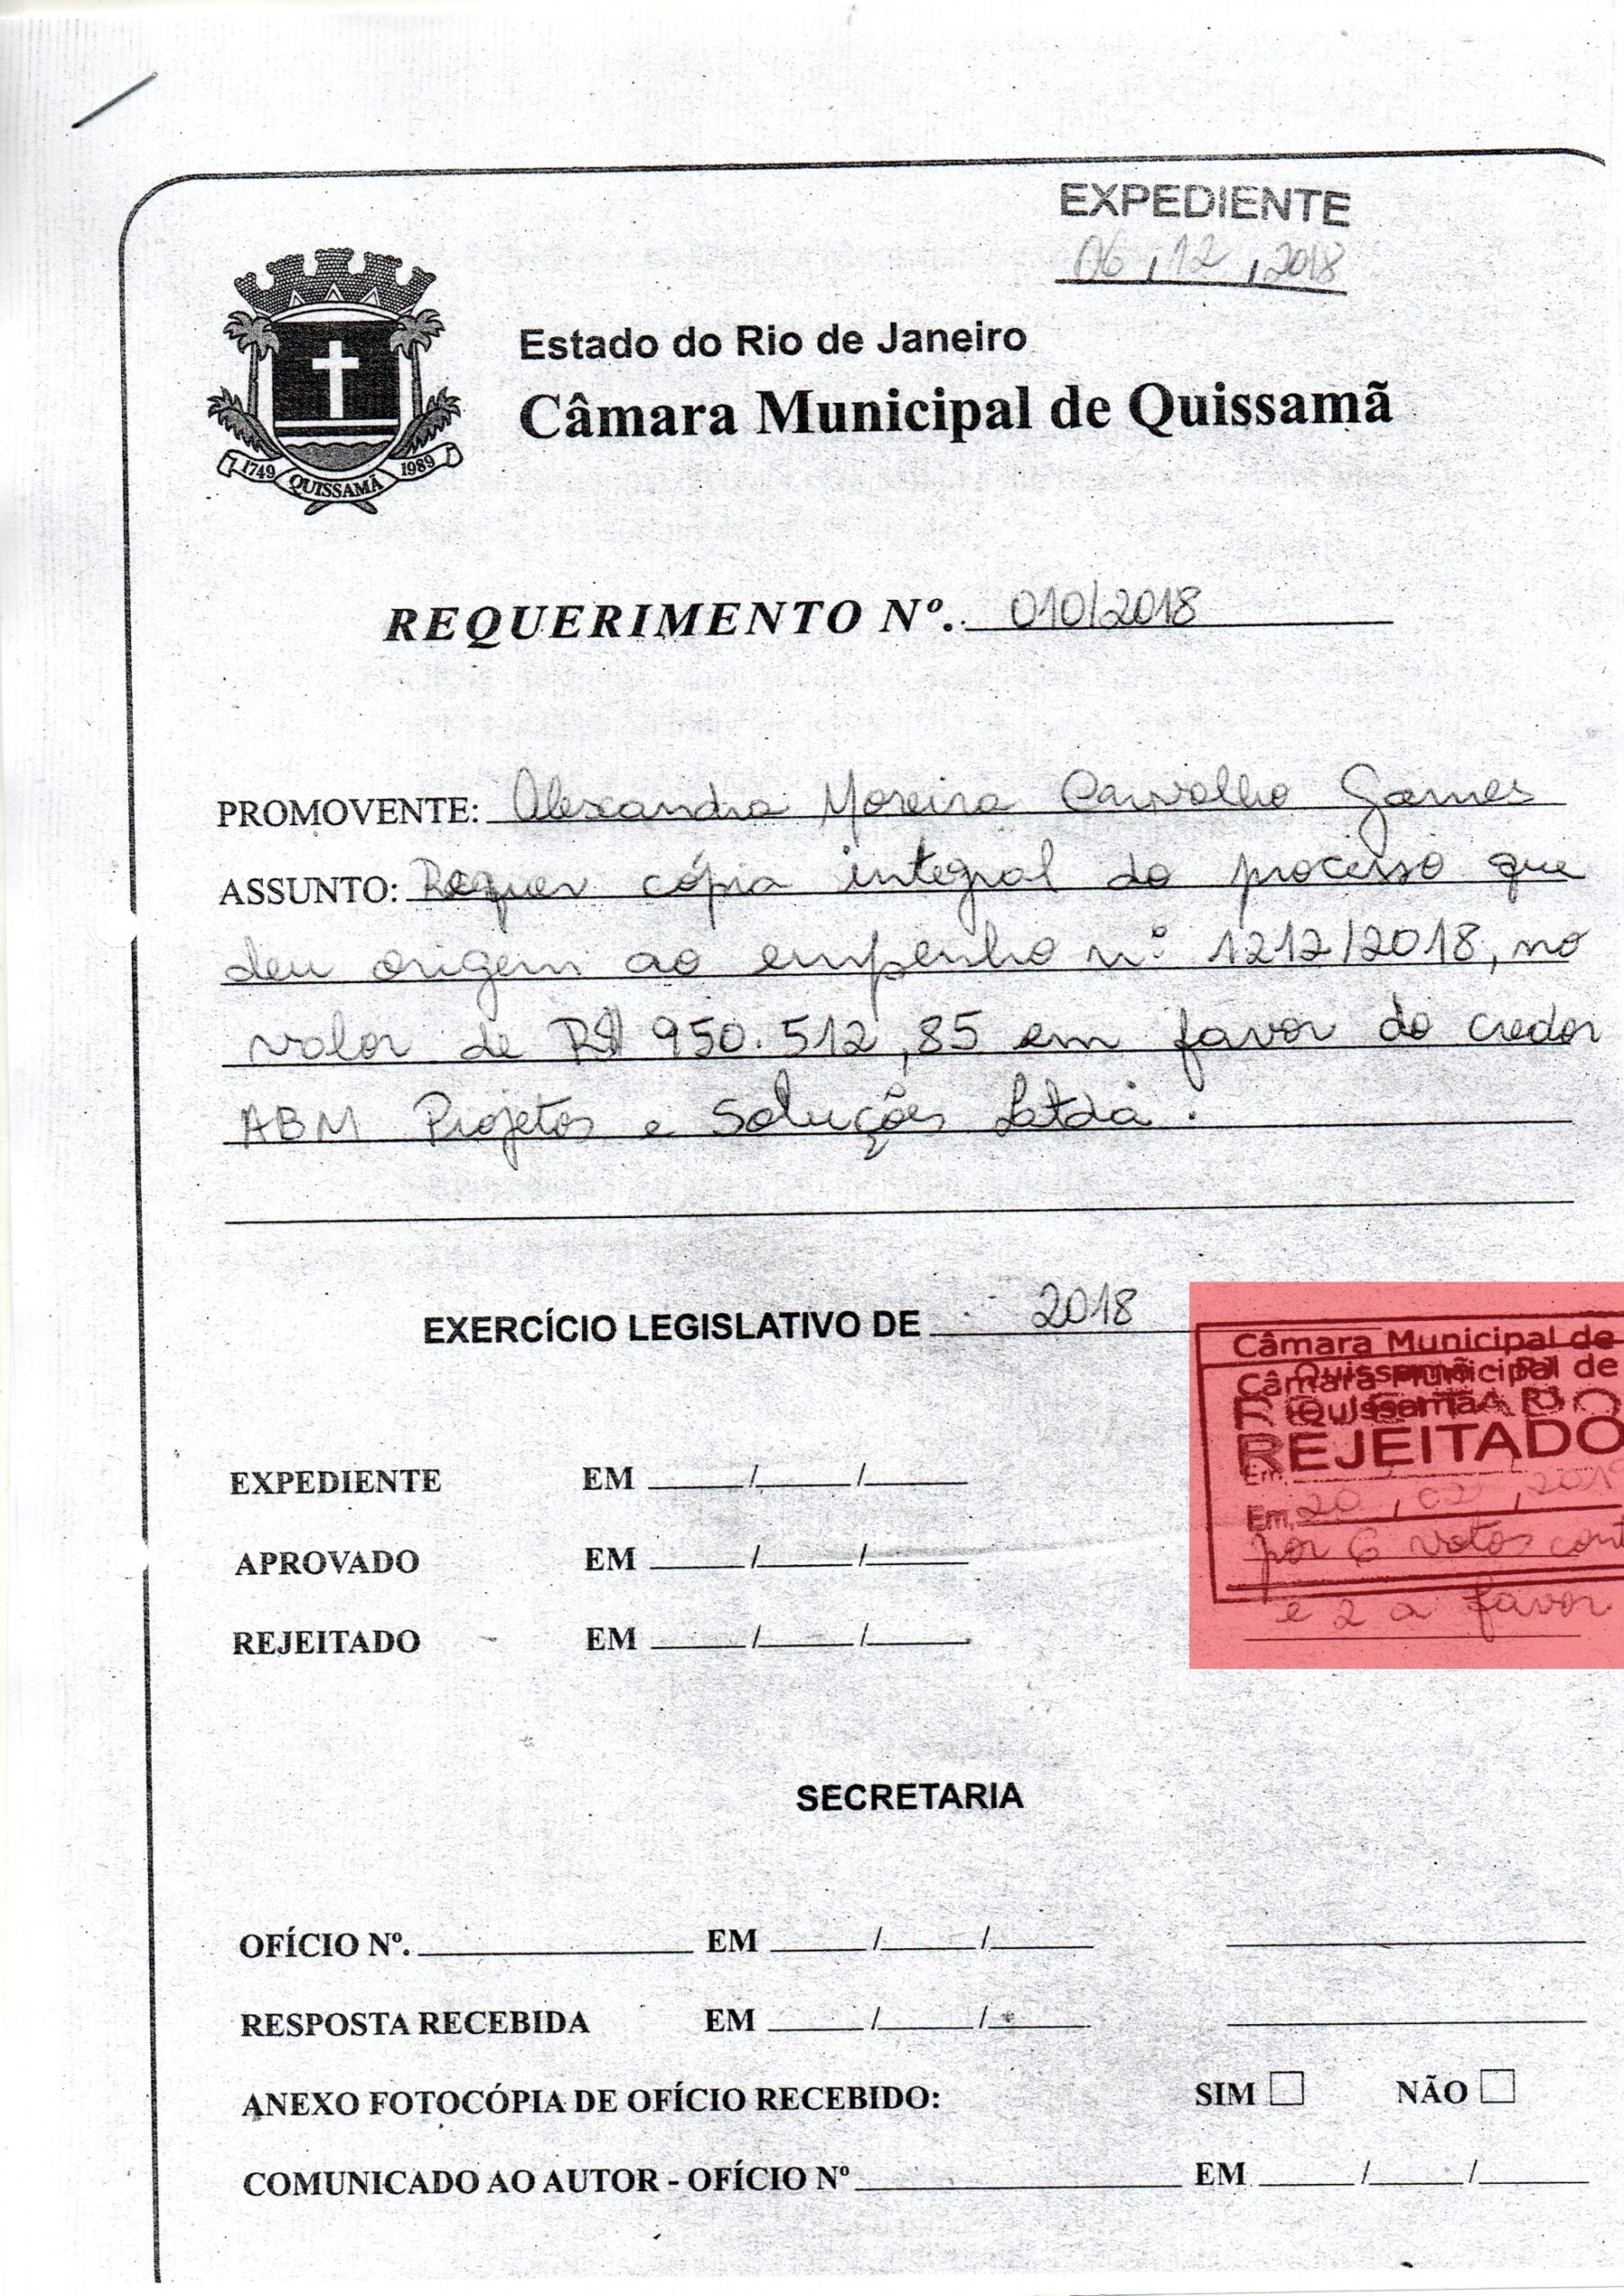 EXPEDIENTE
06, 12, 2018
Estado do Rio de Janeiro
Câmara Municipal de Quissamã
1749 QUISSAMÃ 1989
REQUERIMENTO Nº. 010/2018
PROMOVENTE: Alexandra Moreira Carvalho Gomes
ASSUNTO: Requer cópia integral do processo que
deu origem ao empenho nº 1212/2018, no
valor de R$ 950.512,85 em favor do credor
ABM Projetos e Soluções Ltda.
EXERCÍCIO LEGISLATIVO DE 2018
Câmara Municipal de
Quissamã - RJ
Câmara Municipal de
Quissamã - RJ
REJEITADO
REJEITADO
Em,
Em, 20, 02,
por 6 votos
e 2 a favor
EXPEDIENTE EM ____/____/____
APROVADO EM ____/____/____
REJEITADO EM ____/____/____
SECRETARIA
OFÍCIO Nº. ________ EM ____/____/____
RESPOSTA RECEBIDA EM ____/____/____
ANEXO FOTOCÓPIA DE OFÍCIO RECEBIDO: SIM □ NÃO □
COMUNICADO AO AUTOR - OFÍCIO Nº ________ EM ____/____/____